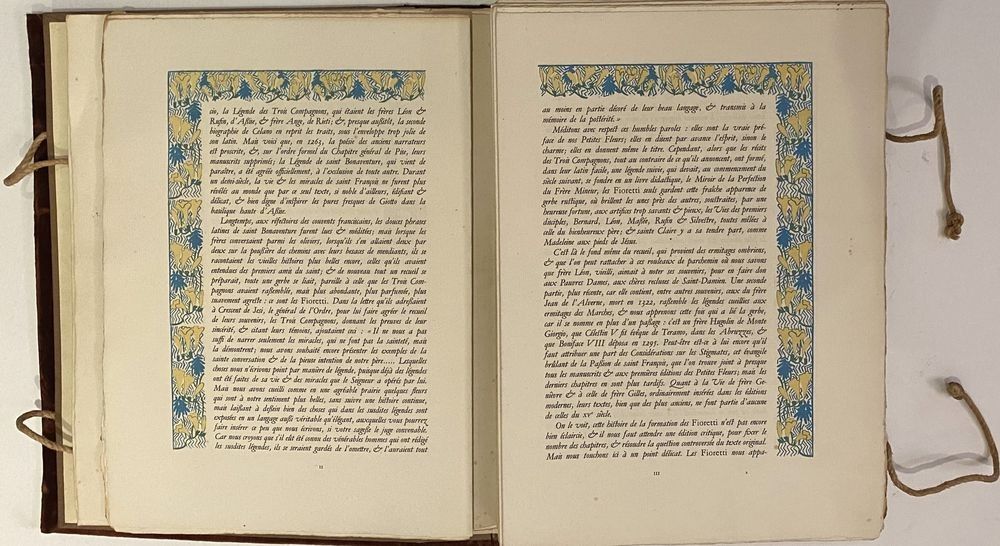 cio, la Légende des Trois Compagnons, qui étaient les frères Léon &
Rufin, d'Assise, & frère Ange, de Rieti; &, presque aussitôt, la seconde
biographie de Celano en reprit les traits, sous l'enveloppe trop jolie de
son latin. Mais voici que, en 1263, la poésie des anciens narrateurs
est proscrite, &, sur l'ordre formel du Chapitre général de Pise, leurs
manuscrits supprimés; la Légende de saint Bonaventure, qui vient de
paraître, a été agréée officiellement, à l'occlusion de toute autre. Durant
un demi-siècle, la vie & les miracles de saint François ne furent plus
révélés au monde que par ce seul texte, si noble d'ailleurs, édifiant &
délicat, & bien digne d'inspirer les pures fresques de Giotto dans la
basilique haute d'Assise.
Longtemps, aux réfectoires des couvents franciscains, les douces phrases
latines de saint Bonaventure furent lues & méditées; mais lorsque les
frères conversaient parmi les oliviers, lorsqu'ils s'en allaient deux par
deux sur la poussière des chemins avec leurs besaces de mendiants, ils se
racontaient les vieilles histoires plus belles encore, celles qu'ils avaient
entendues des premiers amis du saint; & de nouveau tout un recueil se
préparait, toute une gerbe se liait, pareille à celle que les Trois Com-
pagnons avaient rassemblée, mais plus abondante, plus parfumée, plus
suavement agreste : ce sont les Fioretti. Dans la lettre qu'ils adressaient
à Crescent de Jesi, le général de l'Ordre, pour lui faire agréer le recueil
de leurs souvenirs, les Trois Compagnons, donnant les preuves de leur
sincérité, & citant leurs témoins, ajoutaient ceci : « Il ne nous a pas
suffi de narrer seulement les miracles, qui ne font pas la sainteté, mais
la démontrent; nous avons souhaité encore présenter les exemples de la
sainte conversation & de la pieuse intention de notre père..... Lesquelles
choses nous n'écrivons point par manière de légende, puisque déjà des légendes
ont été faites de sa vie & des miracles que le Seigneur a opérés par lui.
Mais nous avons cueilli comme en une agréable prairie quelques fleurs
qui sont à notre sentiment plus belles, sans suivre une histoire continue,
mais laissant à dessein bien des choses qui dans les susdites légendes sont
exposées en un langage aussi véritable qu'élégant, auxquelles vous pourrez
faire insérer ce peu que nous écrivons, si votre sagesse le juge convenable.
Car nous croyons que s'il eût été connu des vénérables hommes qui ont rédigé
les susdites légendes, ils se seraient gardés de l'omettre, & l'auraient tout
II
au moins en partie décoré de leur beau langage, & transmis à la
mémoire de la postérité. »
Méditons avec respect ces humbles paroles : elles sont la vraie pré-
face de nos Petites Fleurs; elles en disent par avance l'esprit, sinon le
charme; elles en donnent même le titre. Cependant, alors que les récits
des Trois Compagnons, tout au contraire de ce qu'ils annoncent, ont formé,
dans leur latin facile, une légende suivie, qui devait, au commencement du
siècle suivant, se fondre en un livre didactique, le Miroir de la Perfection
du Frère Mineur, les Fioretti seuls gardent cette fraîche apparence de
gerbe rustique, où brillent les unes près des autres, soustraites, par une
heureuse fortune, aux artifices trop savants & pieux, les Vies des premiers
disciples, Bernard, Léon, Massée, Rufin & Silvestre, toutes mêlées à
celle du bienheureux père; & sainte Claire y a sa tendre part, comme
Madeleine aux pieds de Jésus.
C'est là le fond même du recueil, qui provient des ermitages ombriens,
& que l'on peut rattacher à ces rouleaux de parchemin où nous savons
que frère Léon, vieilli, aimait à noter ses souvenirs, pour en faire don
aux Pauvres Dames, aux chères recluses de Saint-Damien. Une seconde
partie, plus récente, car elle contient, entre autres souvenirs, ceux du frère
Jean de l'Alverne, mort en 1322, rassemble les légendes cueillies aux
ermitages des Marches, & nous apprenons cette fois qui a lié la gerbe,
car il se nomme en plus d'un passage : c'est un frère Hugolin de Monte
Giorgio, que Célestin V fit évêque de Teramo, dans les Abruzzes, &
que Boniface VIII déposa en 1295. Peut-être est-ce à lui encore qu'il
faut attribuer une part des Considérations sur les Stigmates, cet évangile
brûlant de la Passion de saint François, que l'on trouve joint à presque
tous les manuscrits & aux premières éditions des Petites Fleurs; mais les
derniers chapitres en sont plus tardifs. Quant à la Vie de frère Ge-
nièvre & à celle de frère Gilles, ordinairement insérées dans les éditions
modernes, leurs textes, bien que des plus anciens, ne font partie d'aucune
de celles du XVe siècle.
On le voit, cette histoire de la formation des Fioretti n'est pas encore
bien éclaircie, & il nous faut attendre une édition critique, pour fixer le
nombre des chapitres, & résoudre la question controversée du texte original.
Mais nous touchons ici à un point délicat. Les Fioretti nous appa-
III